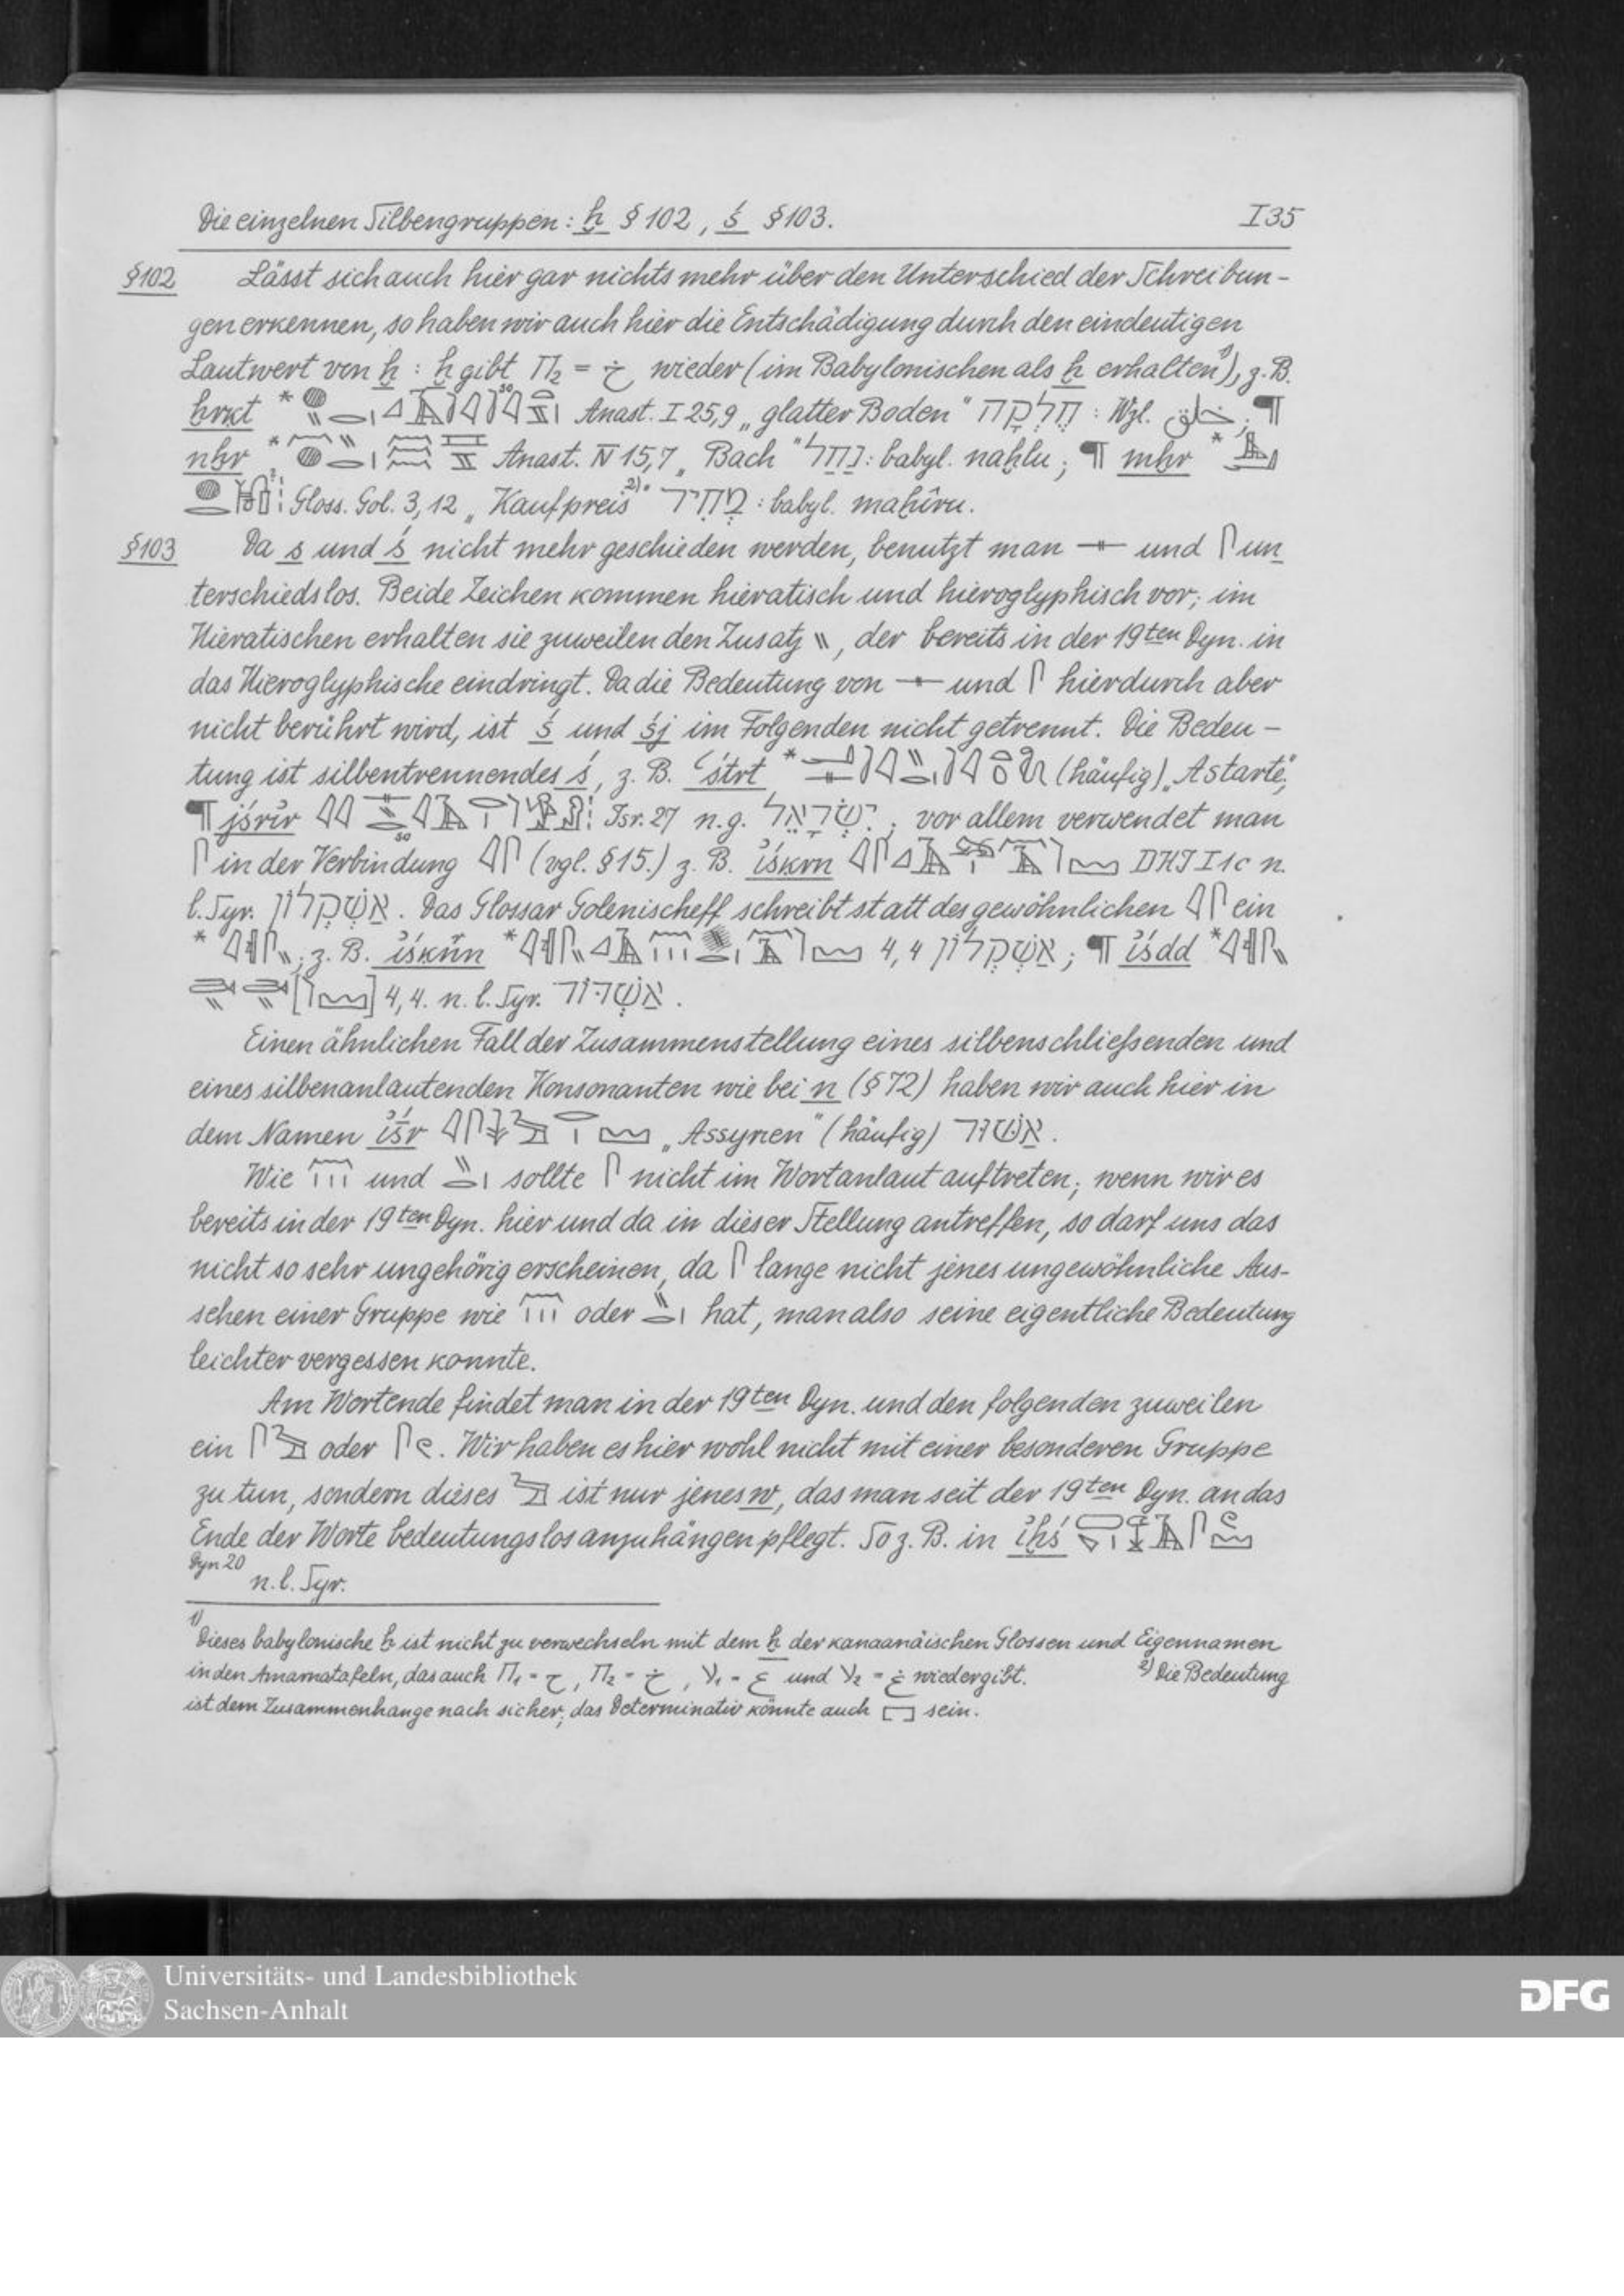 Die einzelnen Silbengruppen: ḫ § 102, ś § 103. I 35
§102 Lässt sich auch hier gar nichts mehr über den Unterschied der Schreibun-
gen erkennen, so haben wir auch hier die Entschädigung durch den eindeutigen
Lautwert von ḫ : ḫ gibt ח2 = خ wieder (im Babylonischen als ḫ erhalten¹⁾), z. B.
ḫrḳt * Anast. I 25,9 „glatter Boden" חֶלְקָה : Wzl. خلق ; ¶
nḫr * Anast. IV 15,7 „Bach" נַחַל : babyl. naḫlu ; ¶ mḫr *
Gloss. Gol. 3,12 „Kaufpreis²⁾" מְחִיר : babyl. maḫîru.
§103 Da s und ś nicht mehr geschieden werden, benutzt man 𓊃 und 𓋴 un
terschiedslos. Beide Zeichen kommen hieratisch und hieroglyphisch vor; im
Hieratischen erhalten sie zuweilen den Zusatz \\, der bereits in der 19ten Dyn. in
das Hieroglyphische eindringt. Da die Bedeutung von 𓊃 und 𓋴 hierdurch aber
nicht berührt wird, ist ś und śj im Folgenden nicht getrennt. Die Bedeu-
tung ist silbentrennendes ś, z. B. ʿśtrt * (häufig) „Astarte",
¶ jśrỉr so Isr. 27 n. g. יִשְׂרָאֵל ; vor allem verwendet man
𓋴 in der Verbindung 𓇋𓋴 (vgl. § 15.) z. B. ỉśḳrn DHI I 1c n.
l. Syr. אַשְׁקְלוֹן . Das Glossar Golenischeff schreibt statt des gewöhnlichen 𓇋𓋴 ein
* ; z. B. * 4,4 אַשְׁקְלוֹן ; ¶ ỉśdd *
4,4. n. l. Syr. אַשְׁדּוֹד .
Einen ähnlichen Fall der Zusammenstellung eines silbenschließenden und
eines silbenanlautenden Konsonanten wie bei n (§ 72) haben wir auch hier in
dem Namen ỉśr „Assyrien" (häufig) אַשּׁוּר .
Wie und sollte 𓋴 nicht im Wortanlaut auftreten; wenn wir es
bereits in der 19ten Dyn. hier und da in dieser Stellung antreffen, so darf uns das
nicht so sehr ungehörig erscheinen, da 𓋴 lange nicht jenes ungewöhnliche Aus-
sehen einer Gruppe wie oder hat, man also seine eigentliche Bedeutung
leichter vergessen konnte.
Am Wortende findet man in der 19ten Dyn. und den folgenden zuweilen
ein oder 𓋴𓏲. Wir haben es hier wohl nicht mit einer besonderen Gruppe
zu tun, sondern dieses ist nur jenes w, das man seit der 19ten Dyn. an das
Ende der Worte bedeutungslos anzuhängen pflegt. So z. B. in
Dyn 20 n. l. Syr.
¹⁾ Dieses babylonische ḫ ist nicht zu verwechseln mit dem ḫ der kanaanäischen Glossen und Eigennamen
in den Amarnatafeln, das auch ח1 = ح , ח2 = خ , ע1 = ع und ע2 = غ wiedergibt. ²⁾ Die Bedeutung
ist dem Zusammenhange nach sicher; das Determinativ könnte auch 𓉐 sein.
Universitäts- und Landesbibliothek
Sachsen-Anhalt
DFG